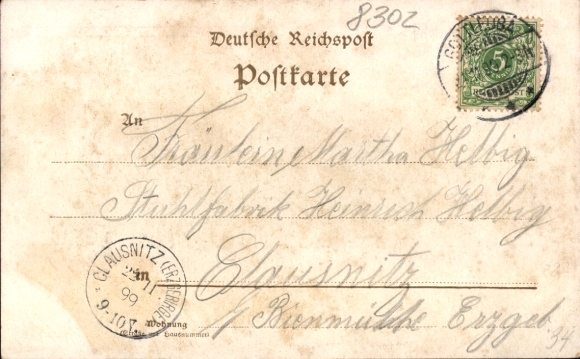 8302
Deutsche Reichspost
Postkarte
GOTTLEUBA
5
An
Fräulein Martha Helbig
Stuhlfabrik Heinrich Helbig
in Clausnitz
b/ Bienmühle Erzgeb.
Wohnung
(Straße und Hausnummer)
CLAUSNITZ (ERZGEBIRGE)
11
99
34